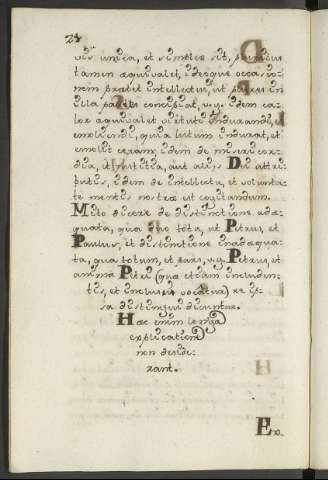 24
vis unica, et simplex sit, pluribus
tamen æquivalet, ideoque occasio-
nem præbet intellectui, ut partes in
illa concipiat, v.g. idem ca-
lor æquivalet virtuti indurandi, et
emoliendi, quia lutum indurat, et
emollit ceram; idem de misericor-
dia, et justitia, aut aliis Dei attri-
butis, idem de intellectu, et volunta-
te mentis nostræ est cogitandum.
Mito dicere de distinctione adæ-
quata, qua duo tota, ut Petrus, et
Paulus, et distinctione inadæqua-
ta, qua totum, et pars, v.g. Petrus, et
anima Petri (quæ etiam includen-
tis, et inclusi vocatur) re ip-
sa distingui dicuntur.
Hæc enim longa
explicationem
non deside-
rant.
Ex.